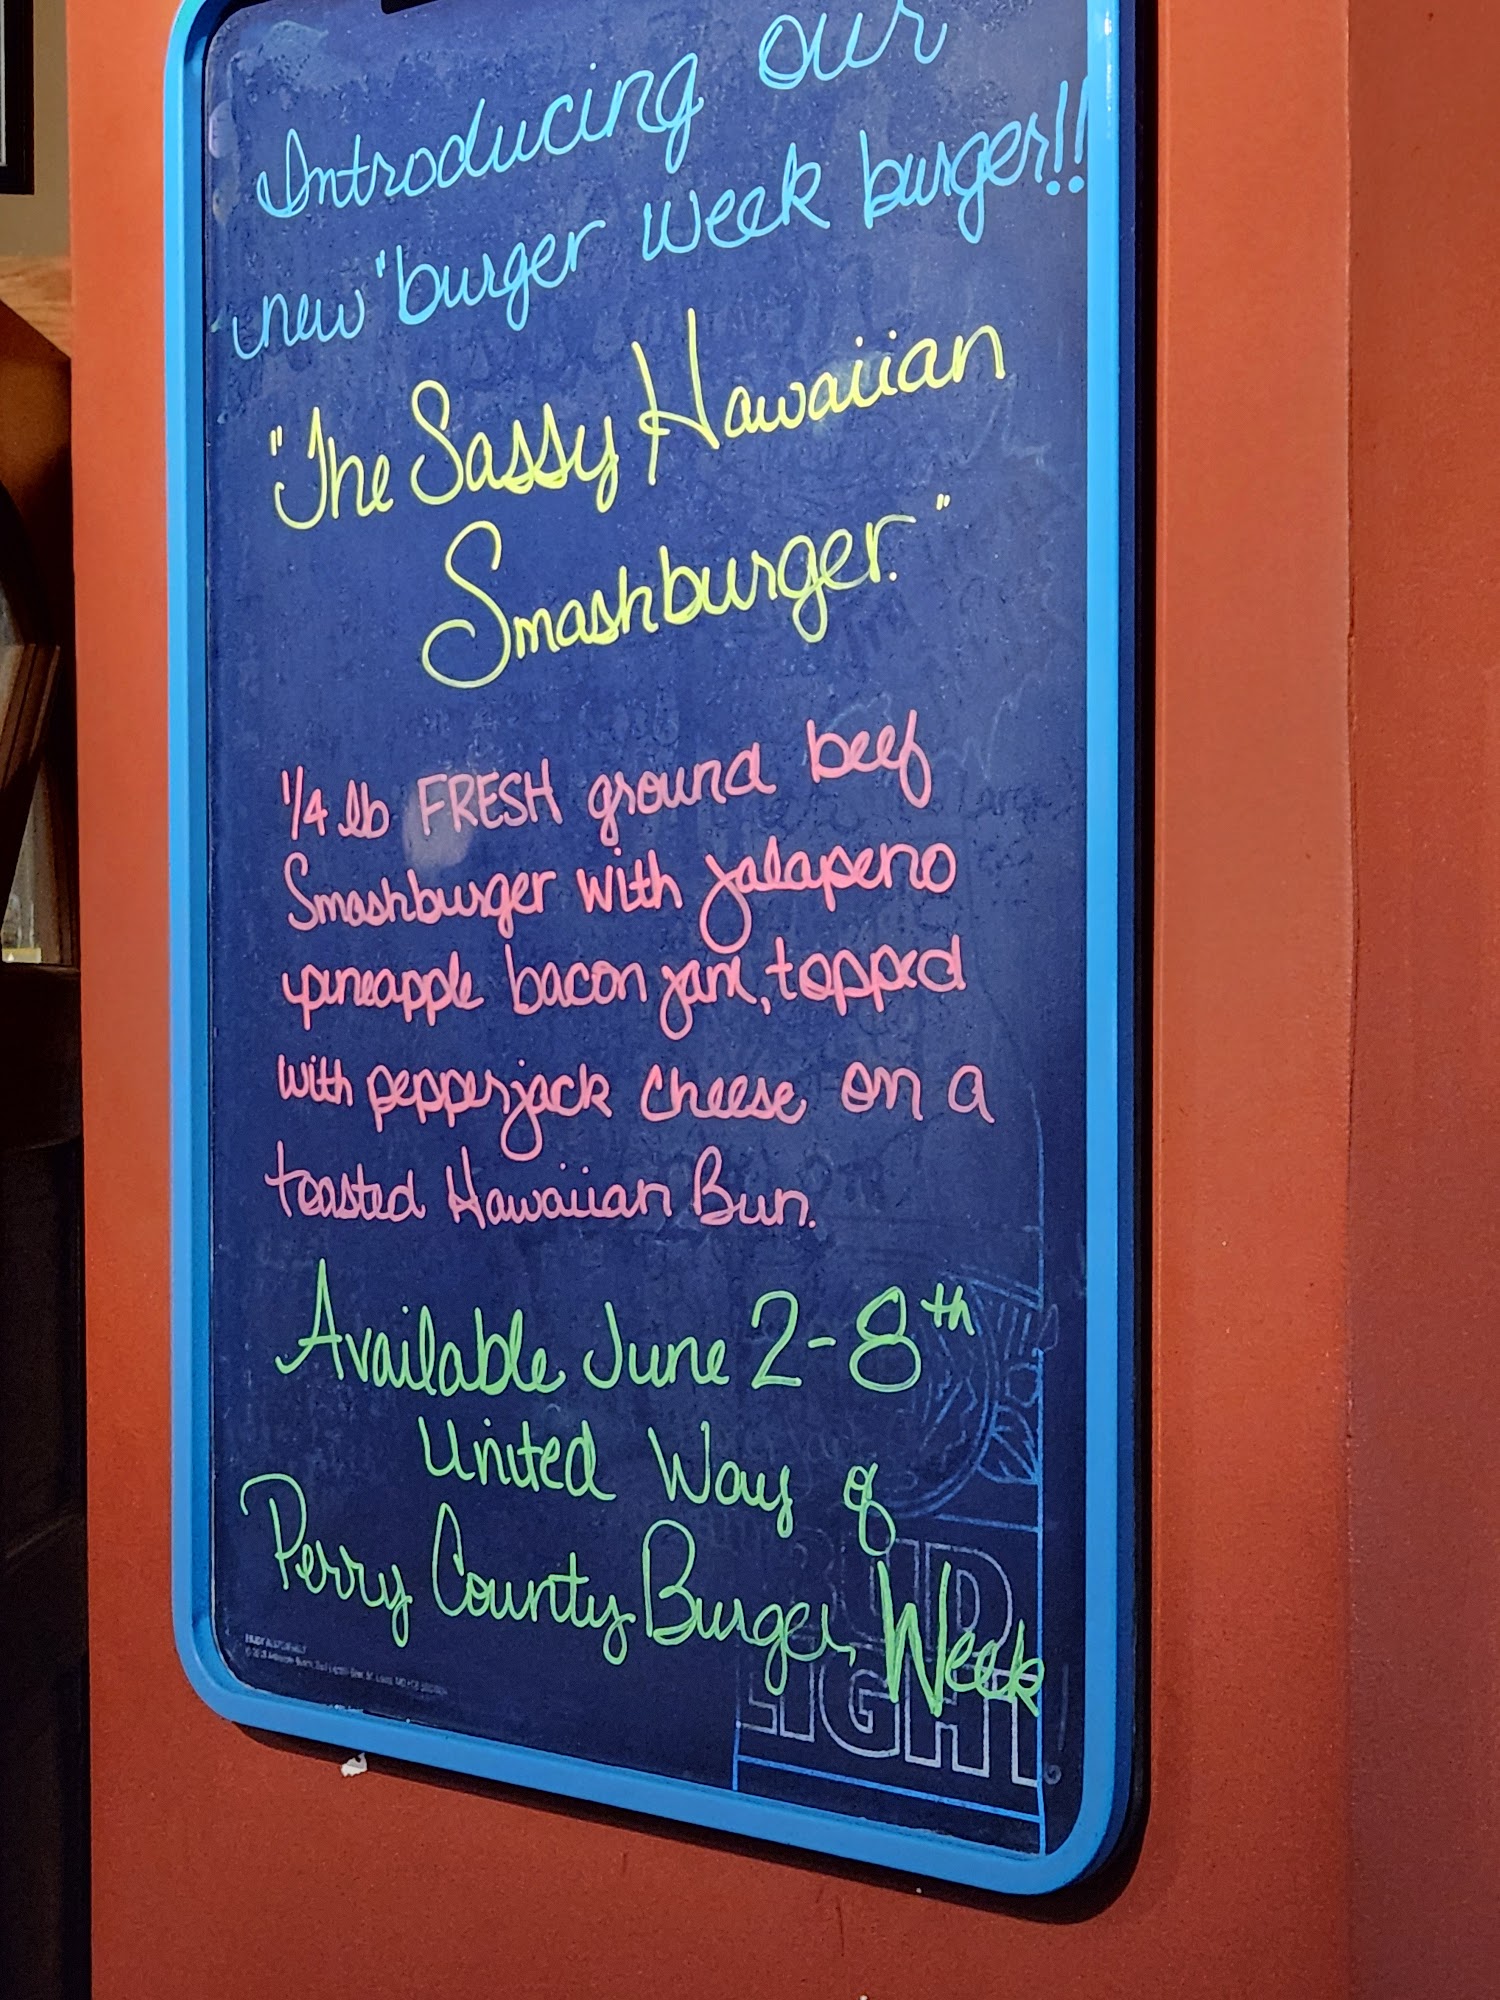 Introducing our
new "burger week burger!!
"The Sassy Hawaiian
Smashburger."
1/4 lb FRESH ground beef
Smashburger with jalapeno
pineapple bacon jam, topped
with pepperjack cheese on a
toasted Hawaiian Bun.
Available June 2-8th
United Way of
Perry County Burger Week
BUD
LIGHT